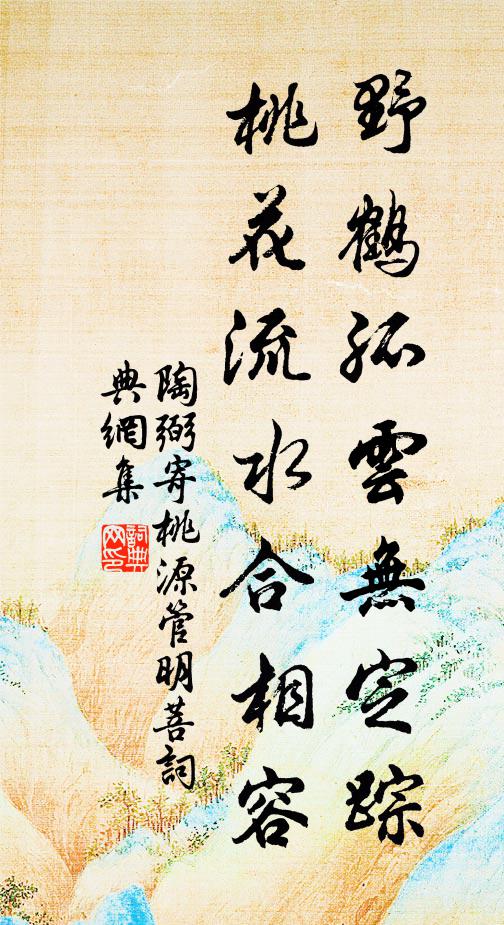 野鶴孤雲無定踪
桃花流水合相容
陶弼寄桃源管明菩詞
典網集
詞典